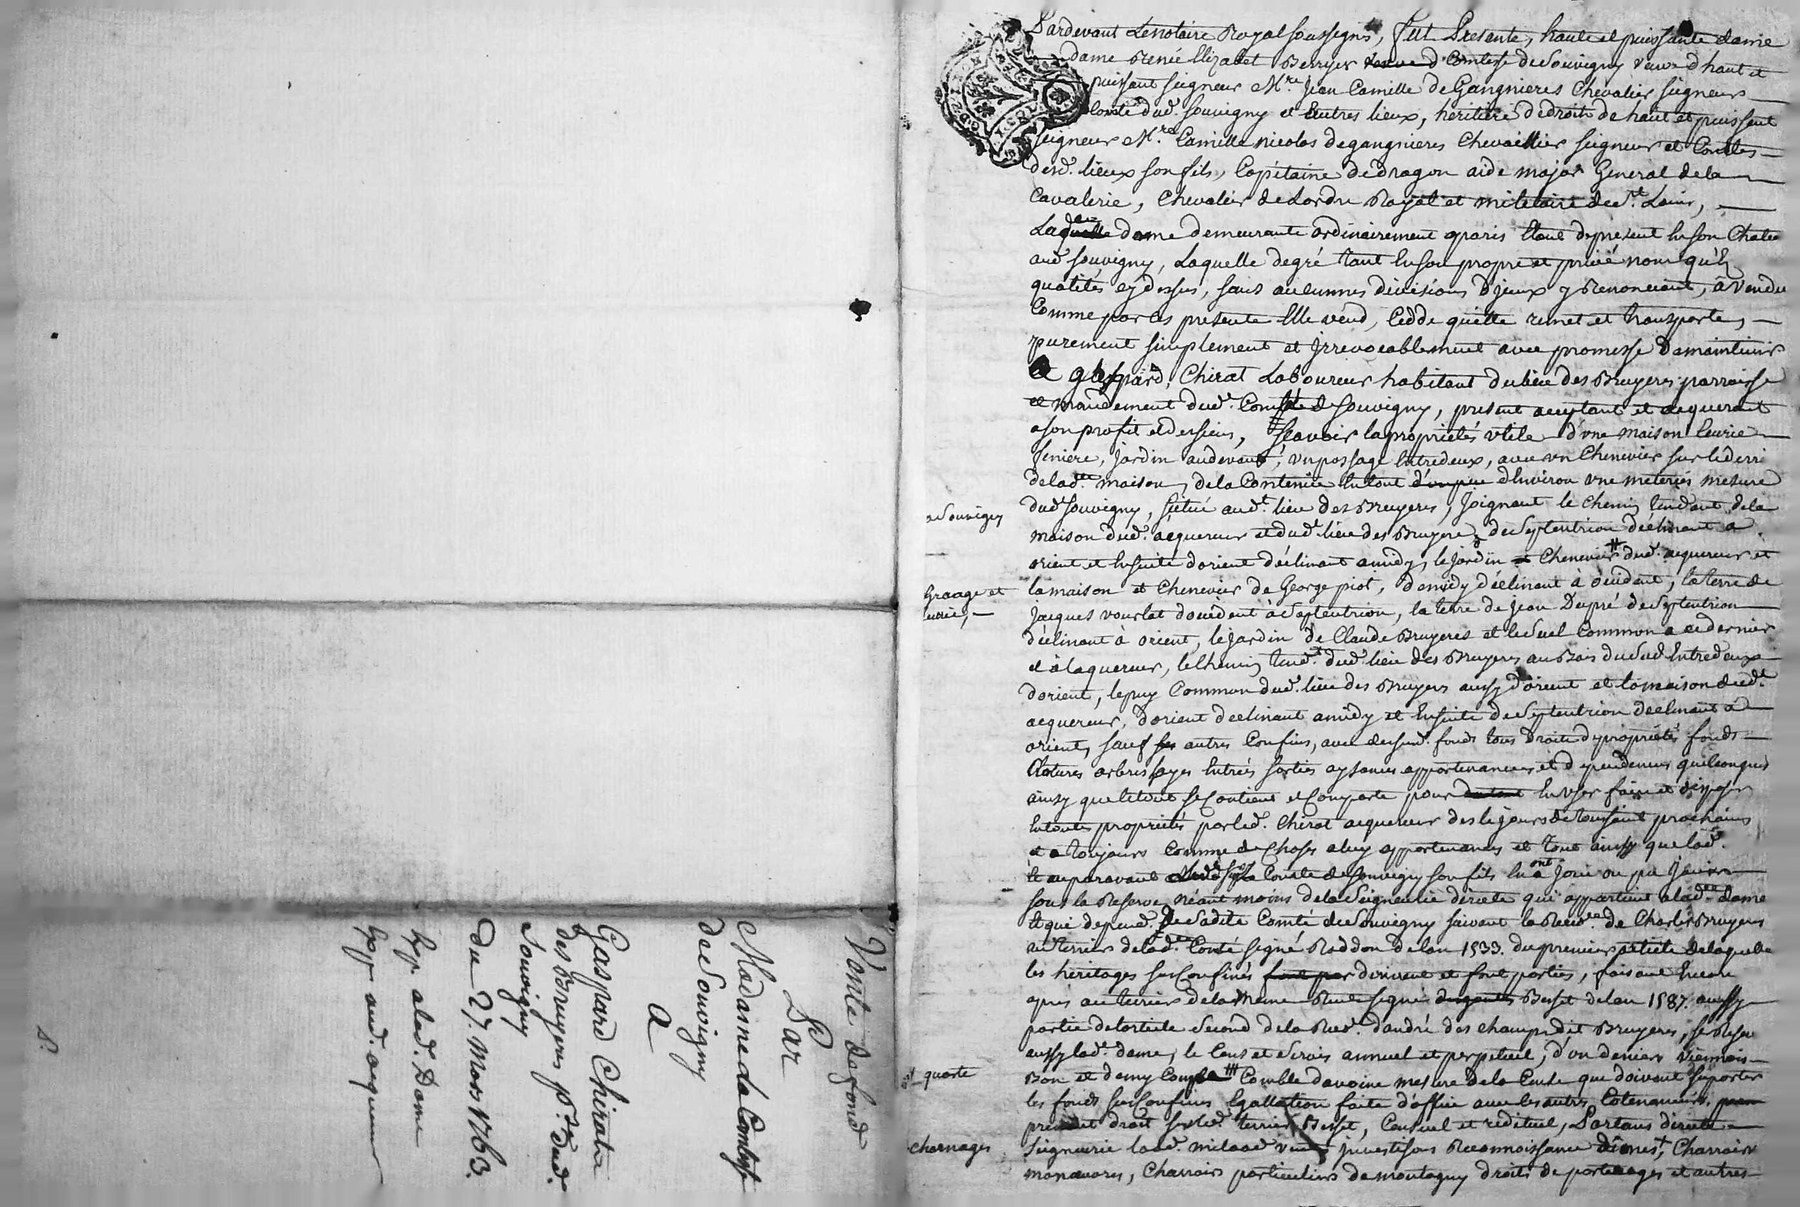 Vente de fond
Par
Madame la Comtesse
de Souvigny
A
Gaspard Chirat
des Bruyeres p.sse dud.
Souvigny
Du 27. Mars 1763.
hyp. alad. Dame
hyp. aud. acquereur
Pardevant Le notaire Royal soussigné, fut Presente, haute et puissante dame
dame Renée Elizabet Berryer d Comtesse de Souvigny veuve d haut et
puissant seigneur M.re Jean Camille de Gangnieres Chevalier seigneur
Comte dud. Souvigny et autres lieux, heritiere de droit de haut et puissant
seigneur M.re Camille nicolas degangnieres Chevaillier seigneur et Comtes
desd. lieux son fils, Capitaine de dragon aide major General de la
Cavalerie, Chevalier de Lordre Royal et militaire de St. Louis,
Laquelle dame demeurante ordinairement aparis Etant depresent En son Chateau
aud souvigny, Laquelle degré tant En son propre et privé nom qu'En
qualités cy dessus, sans aucunnes divisions D'jceux y Renoncant, a vendu
Comme par ces presente Elle vend, Cedde quitte remet et transporte,
purement simplement et Irrevocablement avec promesse de maintenir
A gaspard, Chirat Laboureur habitant du lieu des Bruyeres parroisse
et mandement dud. Comté de Souvigny, present acceptant et acquerant
ason profit et des siens, Scavoir la proprietés utile d'une maison Ecurie
feniere, Jardin au devant, un passage Entredeux, avec un Chenevier sur le derri
de lad.te maison, de la Contenue En tout d'Environ une meterée mesure
a Souvigny
dud souvigny, située aud.t lieu des Bruyeres, Joignant le Chemin tendant de la
maison dud. acquereur dud. lieu des Bruyere, de Septentrion déclinant a
orient et Ensuite d'orient déclinant a midy, le Jardin et Chenevier dud. acquereur et
Grange et
Ecurie,
la maison et Chenevier de George piot, d'amidy d'éclinant à occident, la terre de
Jacques vourlat d'occident à Septentrion, la terre de Jean Dupré de Septentrion
d'éclinant à orient, le Jardin de Claude Bruyeres et le Suel Common a ce dernier
et à laquereur, le Chemin tend.t dud. lieu des Bruyeres au Bois du Sud Entredeux
d'orient, le puy Common dud. lieu des Bruyeres aussy d'orient et la maison dud.t
acquereur, d'orient declinant amidy et Ensuite de Septentrion declinant a
orient, sauf ses autres Confins, avec dessud. fonds tous droits de propriétés fonds
Clotures arbres hayes Entrées sorties aysances appartenances et d'ependences quelconques
ainsy que letout se Contient et Comporte pour En user faire et disposer
En toutes proprietés par led. Chirat acquereur des le jours de toussaint prochains
et a toujours Comme de Choses aluy appartenances et tout ainsy que lad.
et auparavant Comte de Souvigny son fils En ont Joui ou pu Jouir
sous la Reserve néant moins de la Seigneurie directe qui appartient alad.te Dame
et qui depend. de Sadite Comté de Souvigny suivant la Reco.ce de Charles Bruyeres
au terrier de lad. Comté signé Raddon de lan 1533. du premier article de laquelle
les heritages sus Confinés dependent et font parties, faisant Encore
apres au terrier de la meme Rente signé Besset de lan 1587. aussy
partie de larticle Second de la Reco. d'andré des champ dit Bruyeres, se Reserve
aussy lad. dame, le Cens et Servis annuel et perpetuel, d'un denier viennois
quarte
Bon et demy Coupe Comble davoine mesure de la Cense que doivent suporter
les fonds sus Confinés Egallation faite d'office avec les autres Cotenanciers
prendit droit sur led. terrier Besset, Censuel et reditial, Portans directe
charnages
Seigneurie laod. milaod vent jnvestisons Reconnoissance dimes, Charrois
manoeuvres, Charrois particuliers de montagny droits de portenages et autres